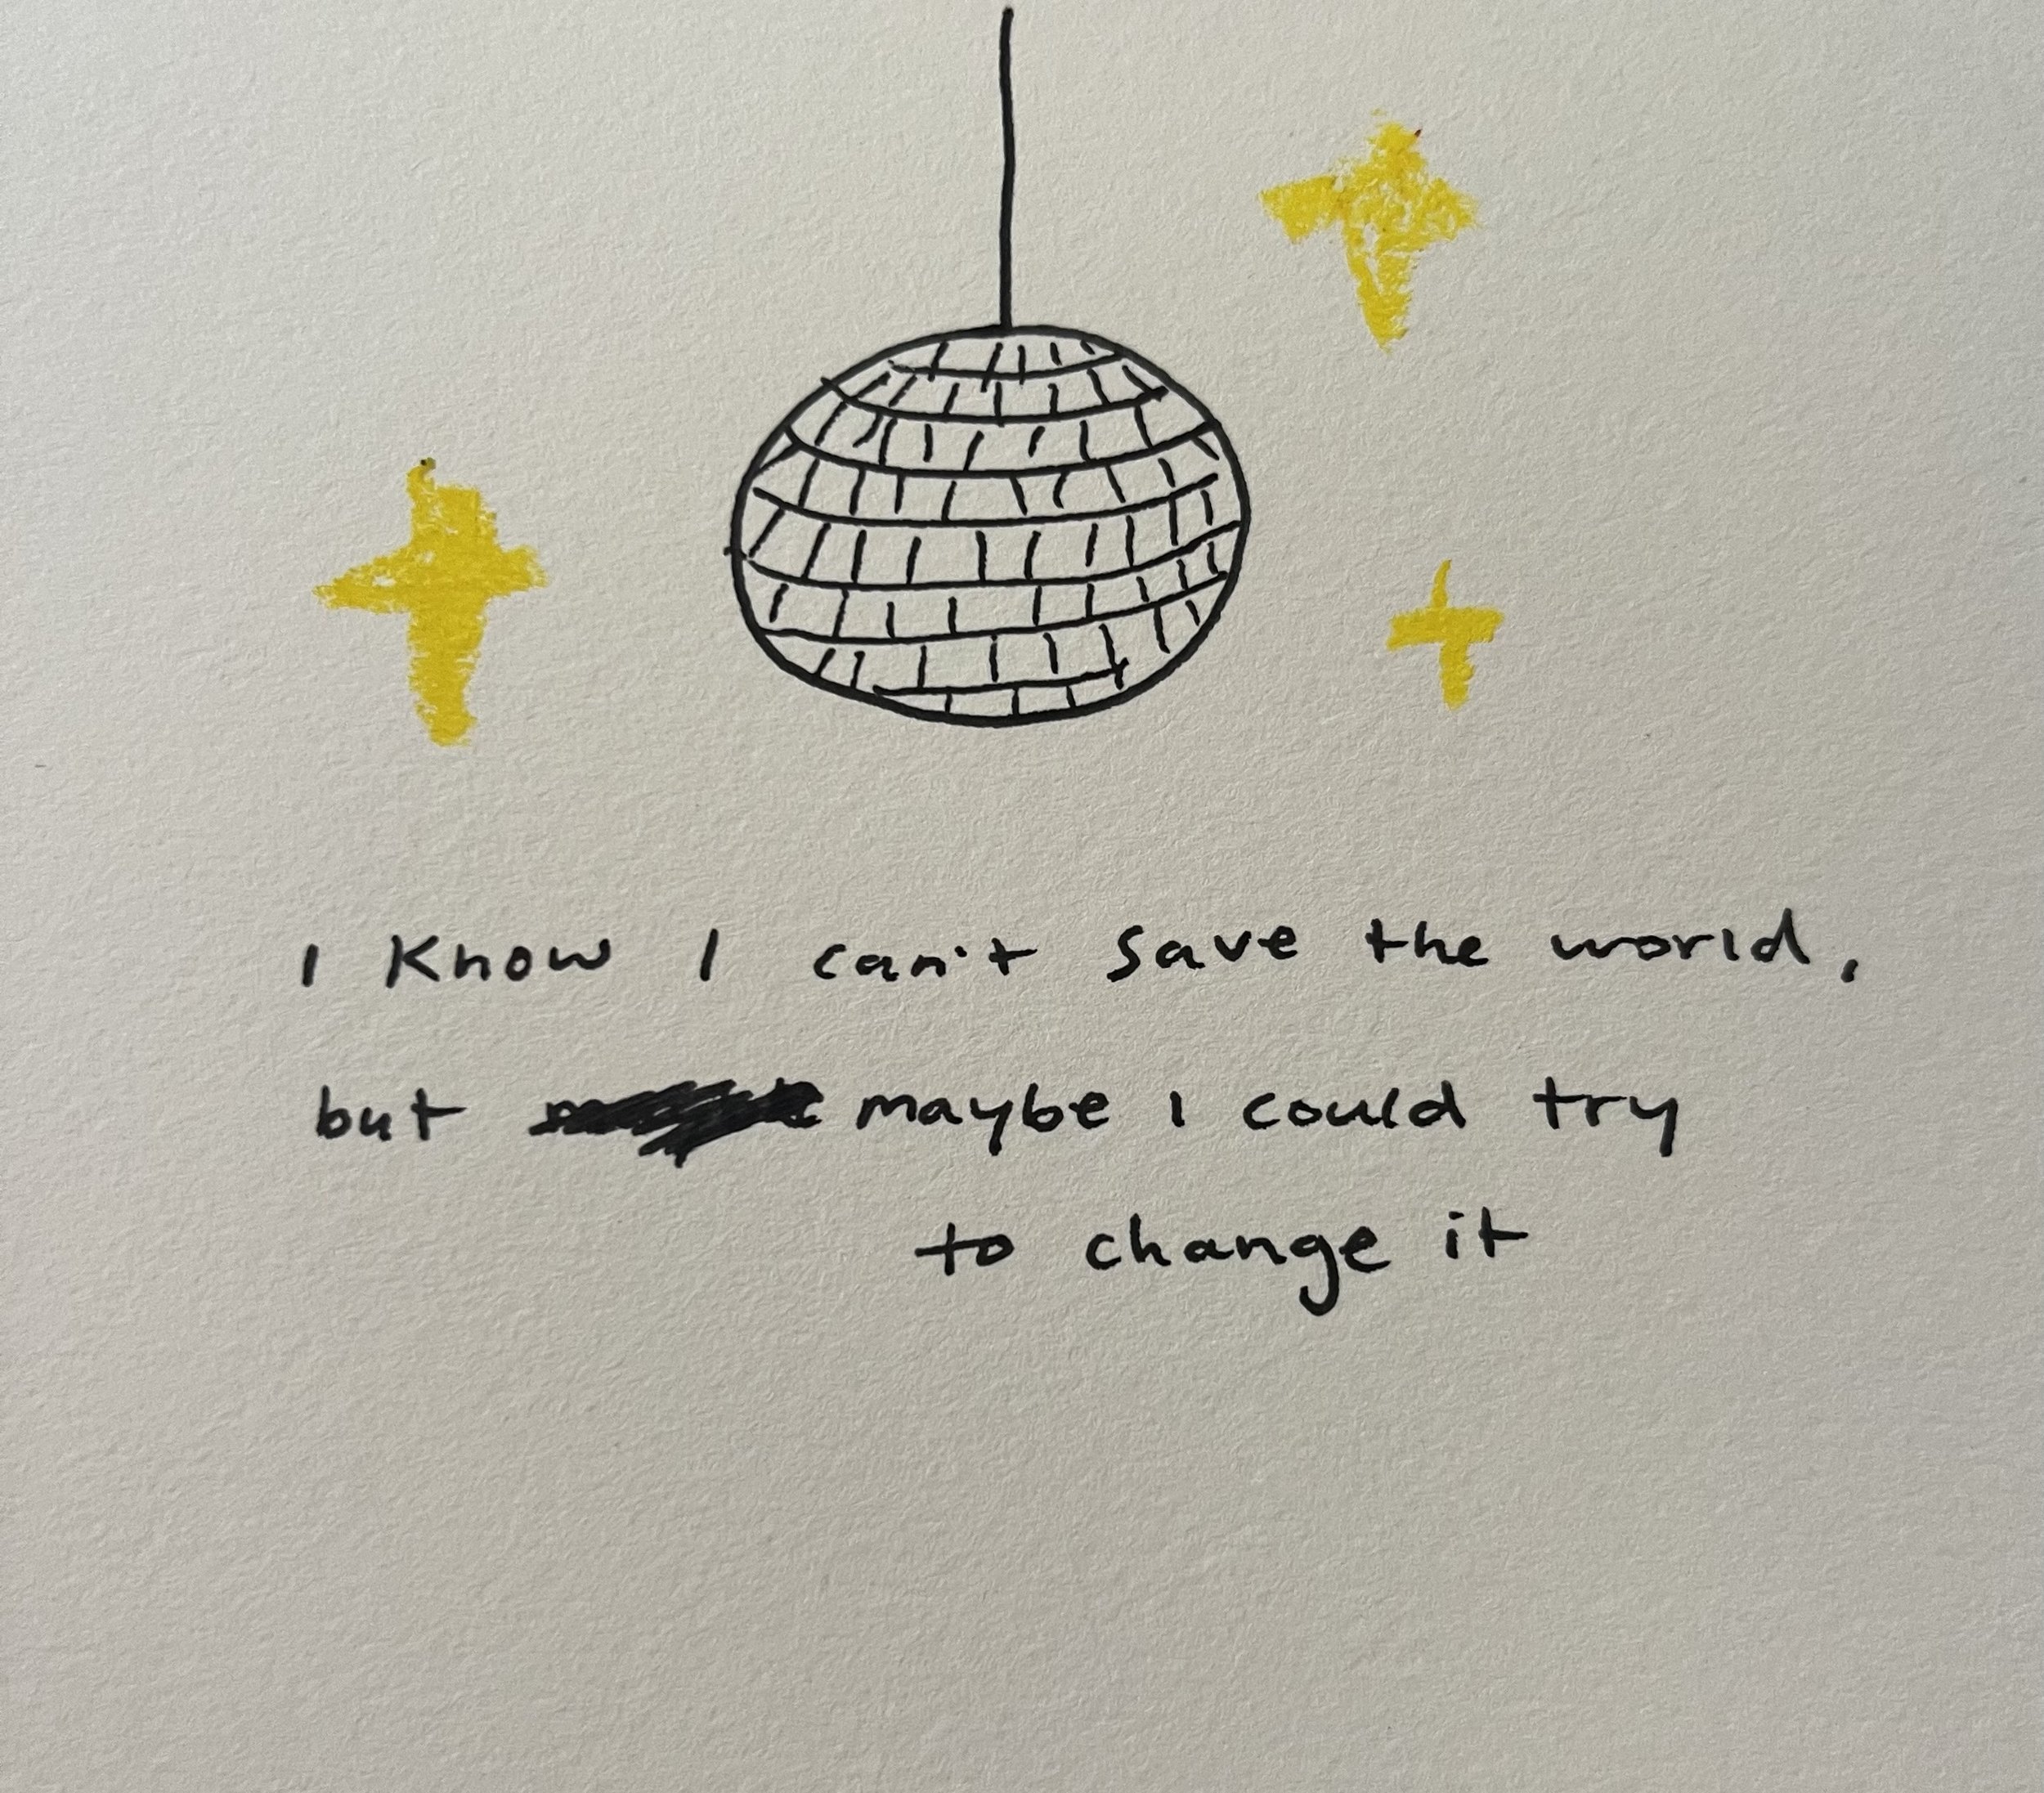 I know I can't save the world,
but maybe I could try
to change it